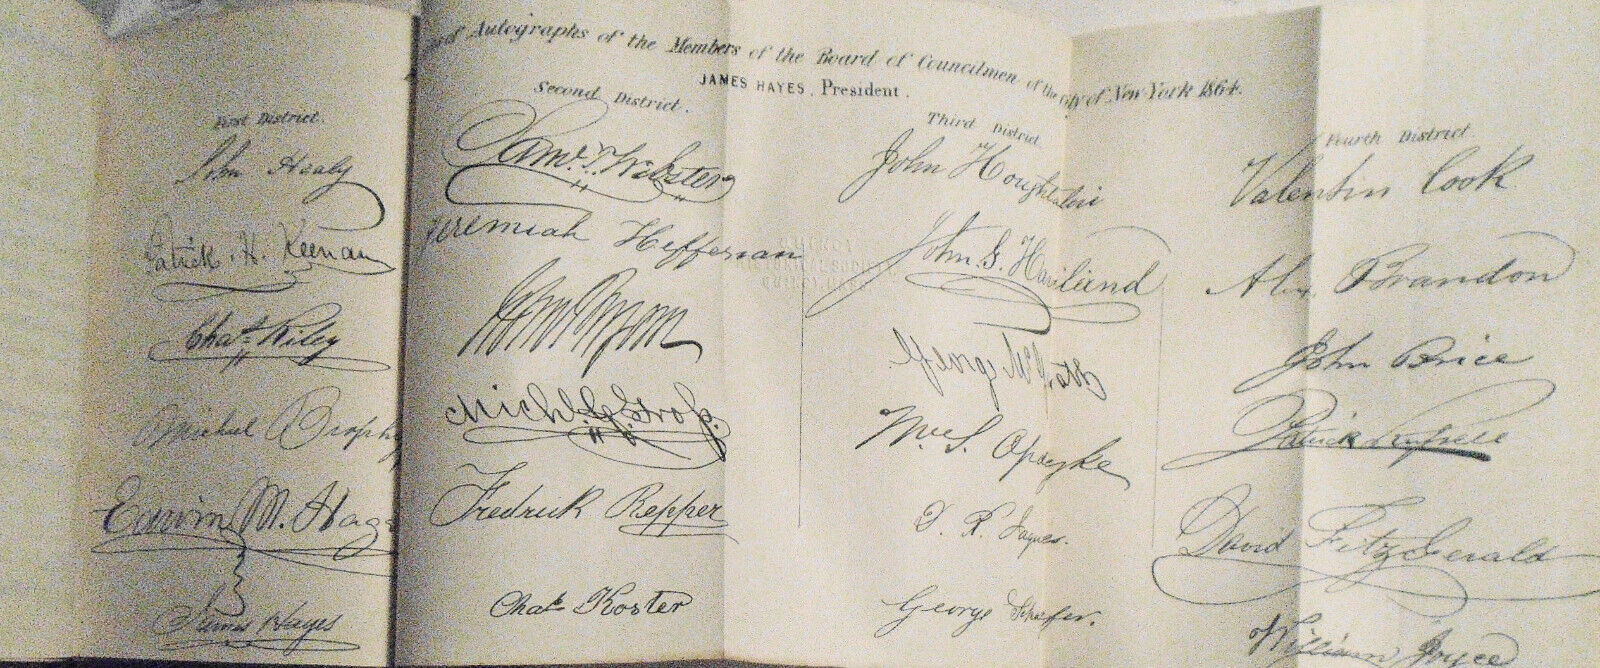 Autographs of the Members of the Board of Councilmen of the City of New-York 1864.
JAMES HAYES, President.
First District.
John Healy
Patrick H. Keenan
Chas. Riley
Michael Brophy
Edwin M. Hag
James Hayes
Second District.
Saml. T. Webster
Jeremiah Heffernan
Michl. Gross
Fredrick Repper
Chas. Koster
Third District
John Houghtalin
John G. Haviland
George
Wm. S. Opdyke
Jaques.
George Schafer.
Fourth District
Valentin Cook
Alex. Brandon
John Brice
Patrick Russell
David FitzGerald
William Joyce